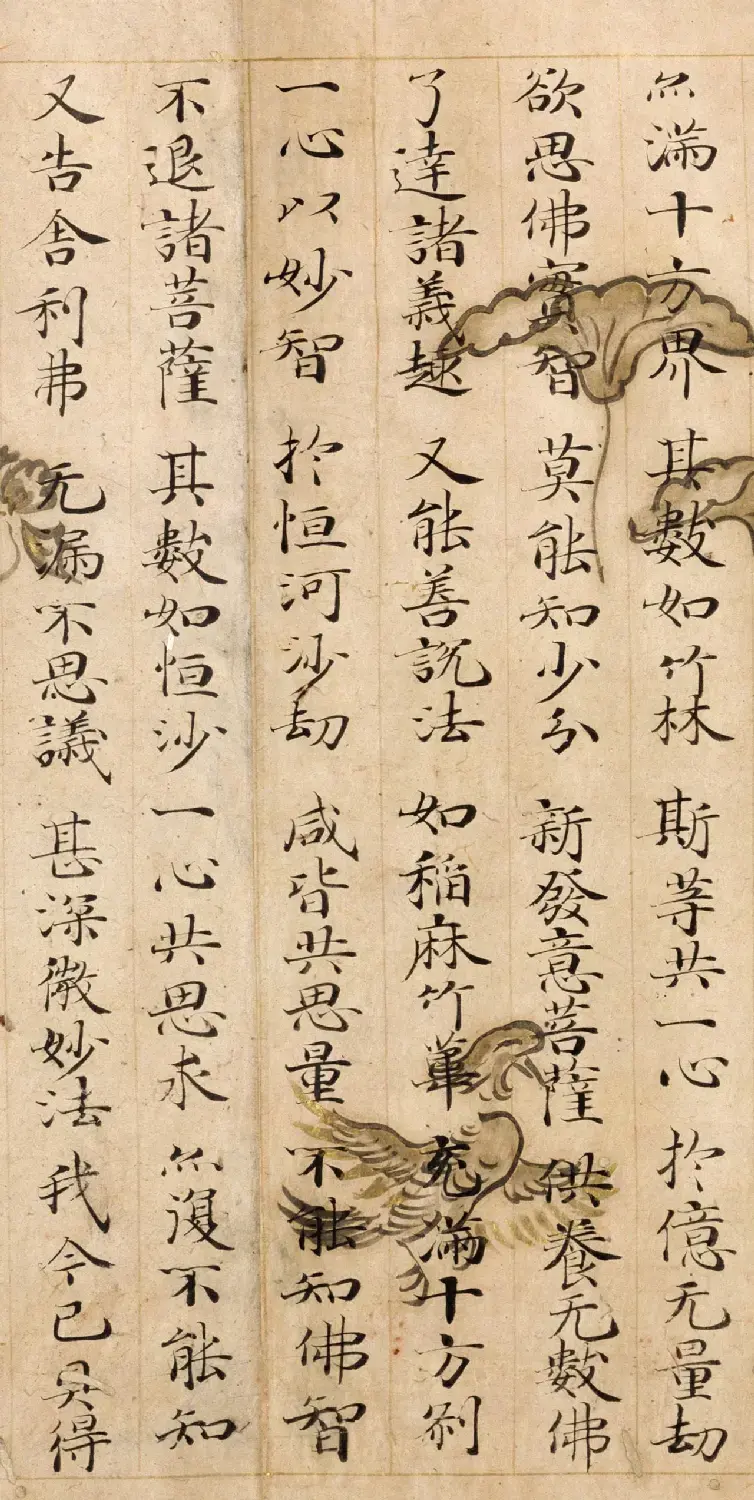 尒滿十方界 其數如竹林 斯等共一心 於億无量劫
欲思佛實智 莫能知少分 新發意菩薩 供養无數佛
了達諸義趣 又能善說法 如稻麻竹葦 充滿十方剎
一心以妙智 於恒河沙劫 咸皆共思量 不能知佛智
不退諸菩薩 其數如恒沙 一心共思求 尒復不能知
又告舍利弗 无漏不思議 甚深微妙法 我今已具得